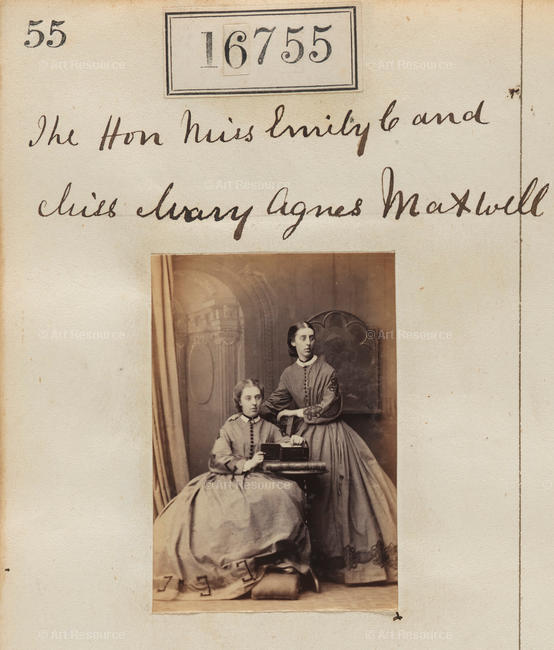 55
16755
The Hon Miss Emily C and
Miss Mary Agnes Maxwell
© Art Resource
© Art Resource
© Art Resource
© Art Resource
© Art Resource
© Art Resource
© Art Resource
© Art Resource
© Art Resource
© Art Resource